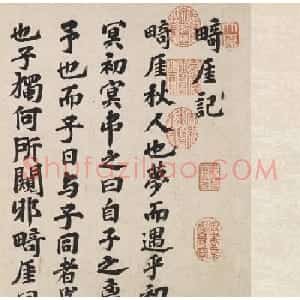 畸厓记
畸厓秋人也夢而遇乎
冥初冥弔之曰自子之
予也而予日与子同者
也子獨何所闕邪畸厓
Shufaziliao.com